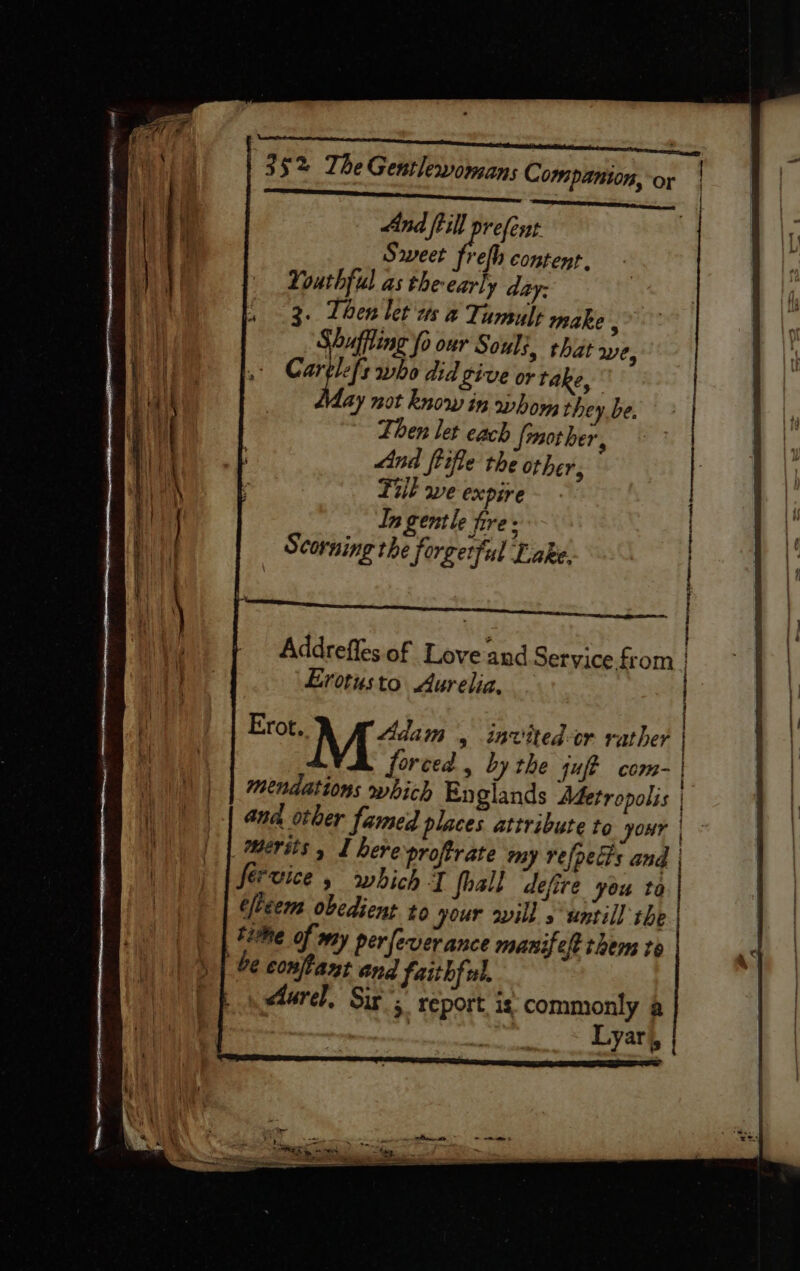 352 The Gentlewomans Companion, or
And ſtill preſent
Sweet freſh content.
Youthful as the early day.
3. Then let us a Tumult make,
Shuffling ſo our Souls, that we,
Careleſs who did give or take,
May not know in whom they be.
Then let each ſmother,
And ſtifle the other,
Till we expire
In gentle fire;
Scorning the forgetful Lake.
Addreſſes of Love and Service from
Erotus to Aurelia.
Erot. MAdam, invited or rather
forced, by the juſt com-
mendations which Englands Metropolis
and other famed places attribute to your
merits, I here proſtrate my reſpects and
ſervice, which I ſhall deſire you to
eſteem obedient to your will, untill the
time of my perſeverance manifeſt them to
be conſtant and faithful.
Aurel. Sir, report is commonly a
Lyar,